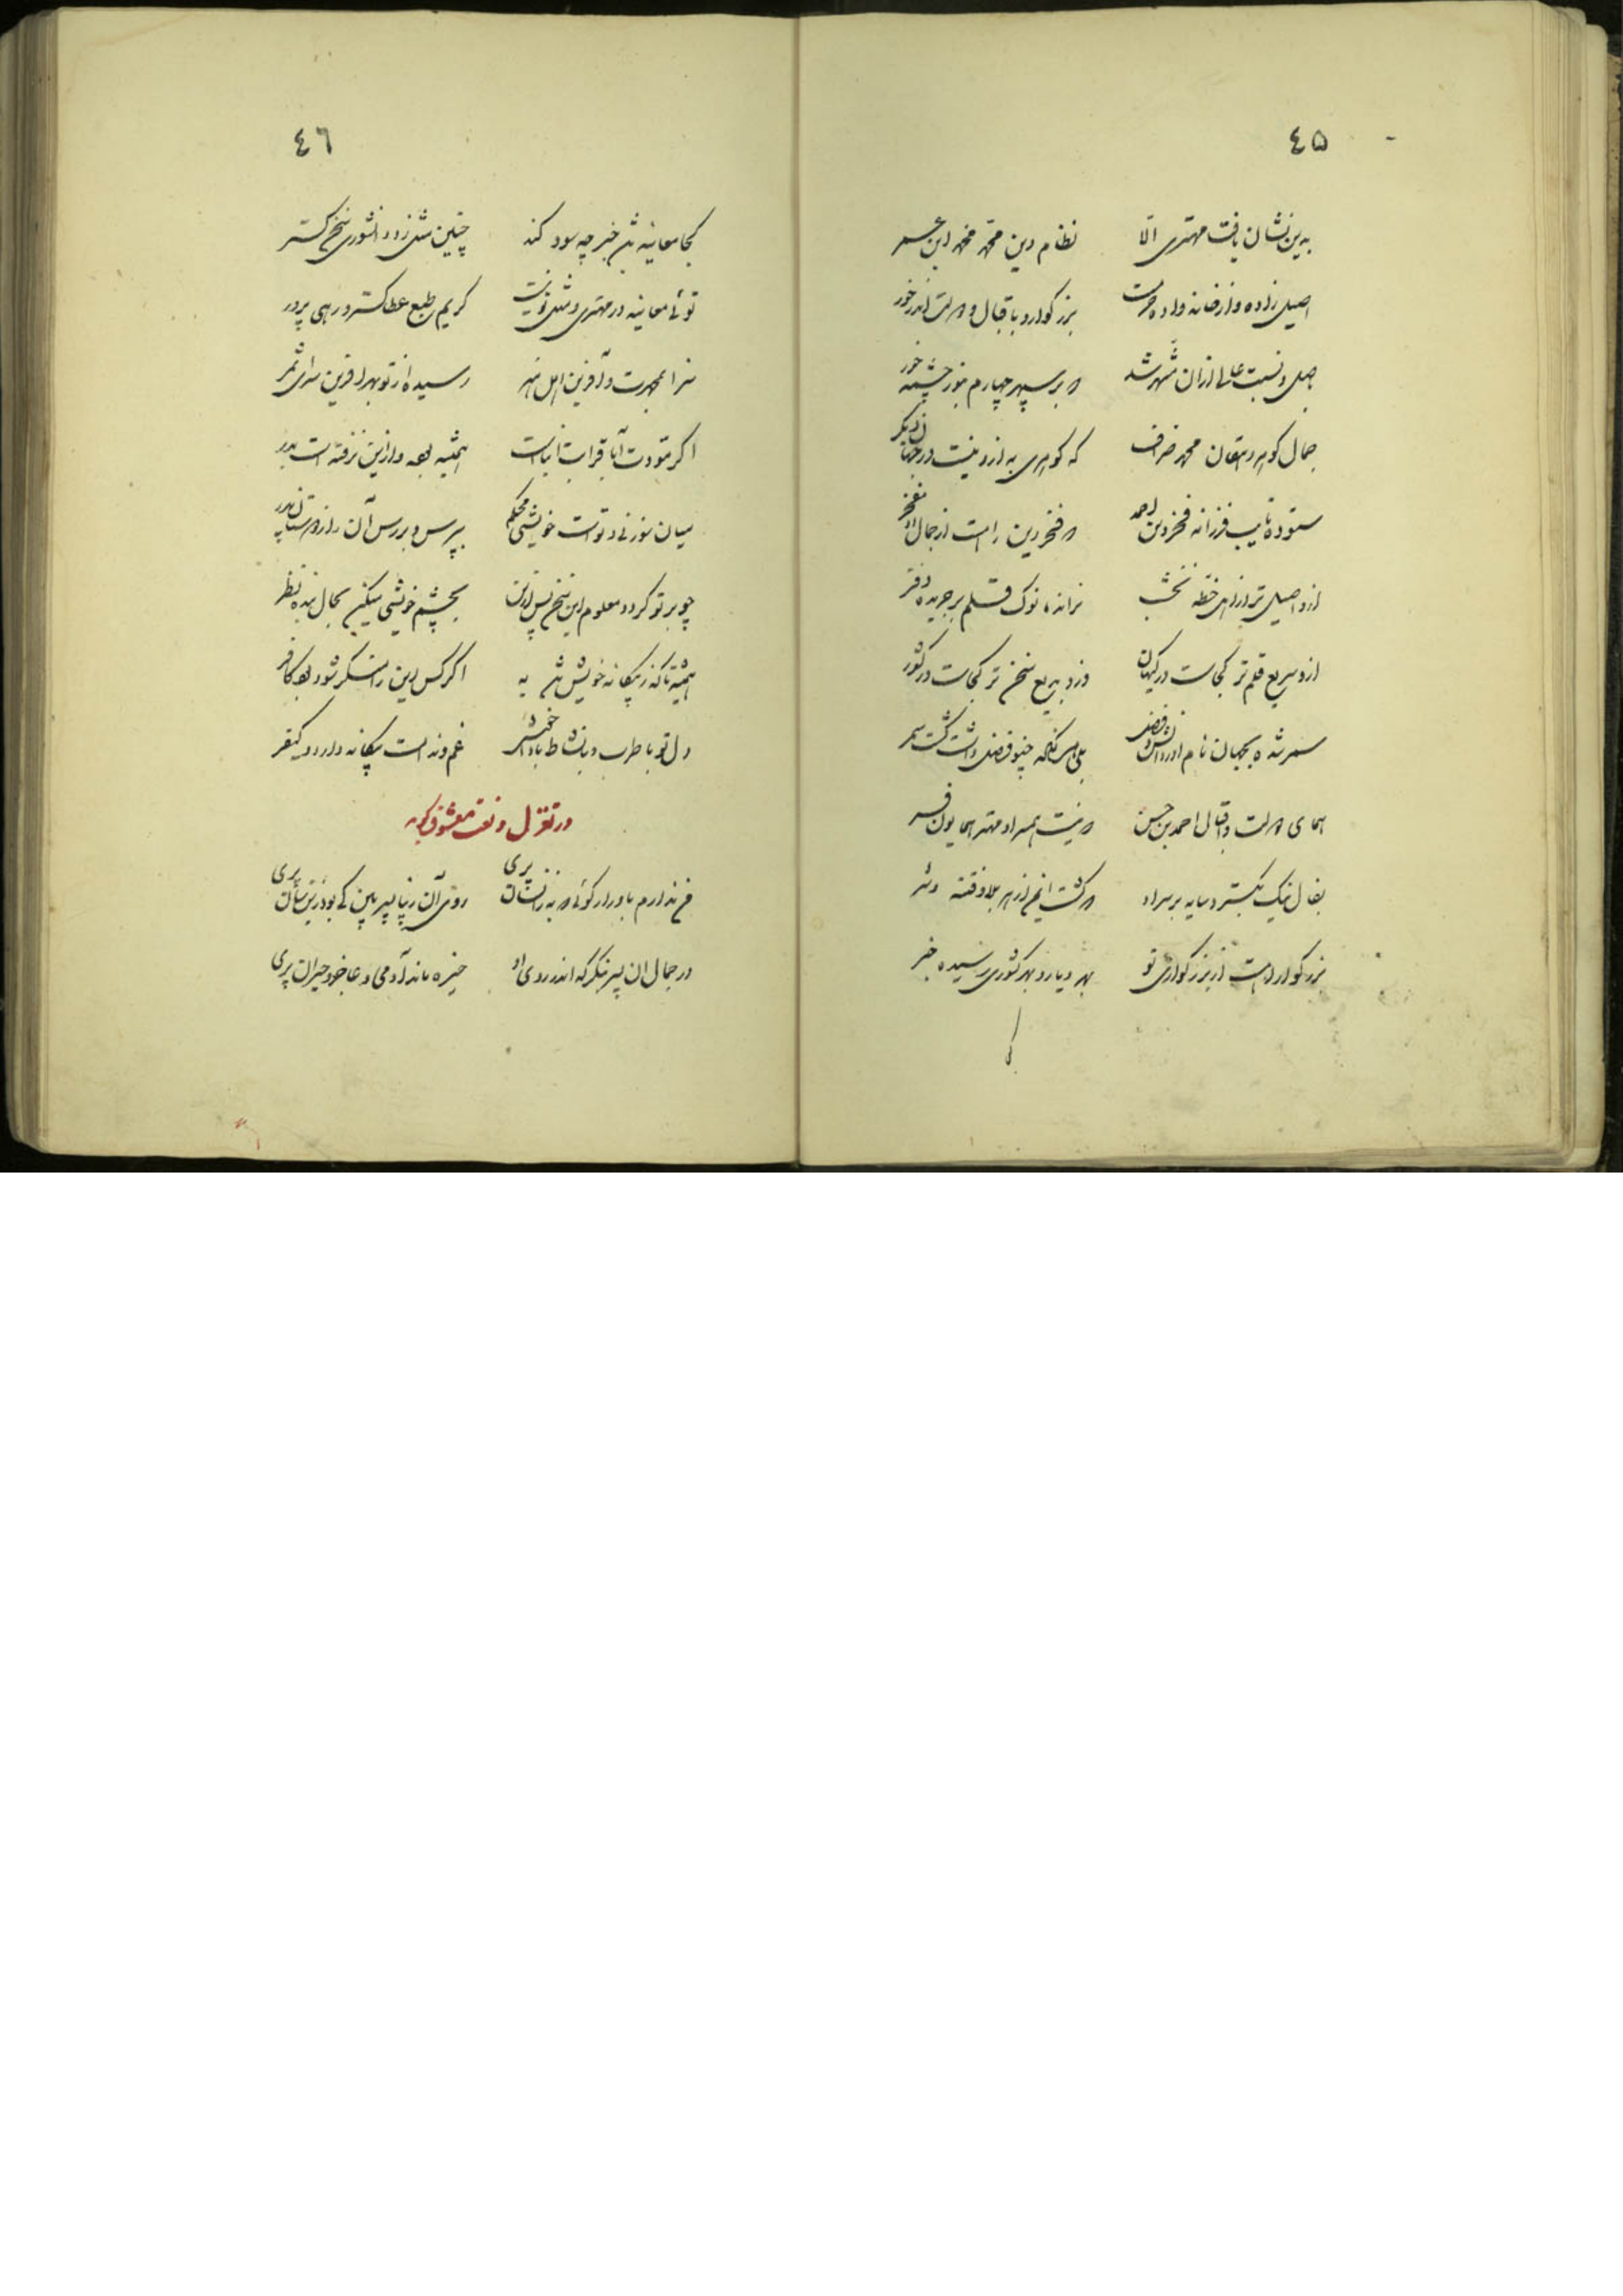 ٤۵
بدین نشان نیافت مهتری الا نظام دین محمد محمد ابن عمر
اصیل زاده و از خانه داده حرمت بزرگوار و باقبال و دولت اندر خور
باصل و نسبت عالی ازان مشهر شد که بر سپهر چهارم بنور چشمه خور
جمال گوهر دهقان محمد صراف که گوهری به ازو نیست در جهان دیگر
ستوده نایب فرزانه فخر دین احمد که فخر دین راست از جمال او مفخر
ازو اصیل تر از اهل خطه نخشب نراند نوک قلم بر جریده دفتر
ازو سریع قلم تر کجاست در کیهان وزو بدیع سخن تر کجاست در کشور
سمر شده بجهان نام او بدانش و فضل بلی هر آنکه چنو فضل داشت گشت سمر
همای دولت و اقبال احمد بن حسن که نیست همبر او مهتر همایون فر
بفال نیک بگسترد سایه بر سر او که گشت ایمن از هر بلا و فتنه و شر
بزرگوارا هست از بزرگواری تو بهر دیار و بهر کشوری رسیده خبر
٤٦
کجا معاینه شد خبر چه سود کند چنین مثل زد دانشوری سخن گستر
توئی معاینه در مهتری و مثل تو نیست کریم طبع عطا گستر و رهی پرور
سزا بمهرت و آفرین اهل هنر رسیده از تو بهر آفرین سرای ثمر
اگر مودت آبا قرابت ابناست همیشه بود و ازین نرفته است بدر
میان سوزنی و تو است خویشی محکم بپرس و بررس آن را از دوستان پدر
چو بر تو گردد معلوم این سخن پس ازین بچشم خویشی میکن بحال بنده نظر
همیشه تا که ز بیگانه خویش به اگر کس این را منکر شود بود کافر
دل تو با طرب و با نشاط بادا خویش غم و ندامت بیگانه وار دور کیفر
در تغزل و نعت معشوق گوید
من ندارم باور ار گوئی که به زانسان پری روی آن زیبا پسر بین کی بود زینسان پری
در جمال آن پسر بنگر که اندر روی او خیره ماند آدمی و عاجز و حیران پری